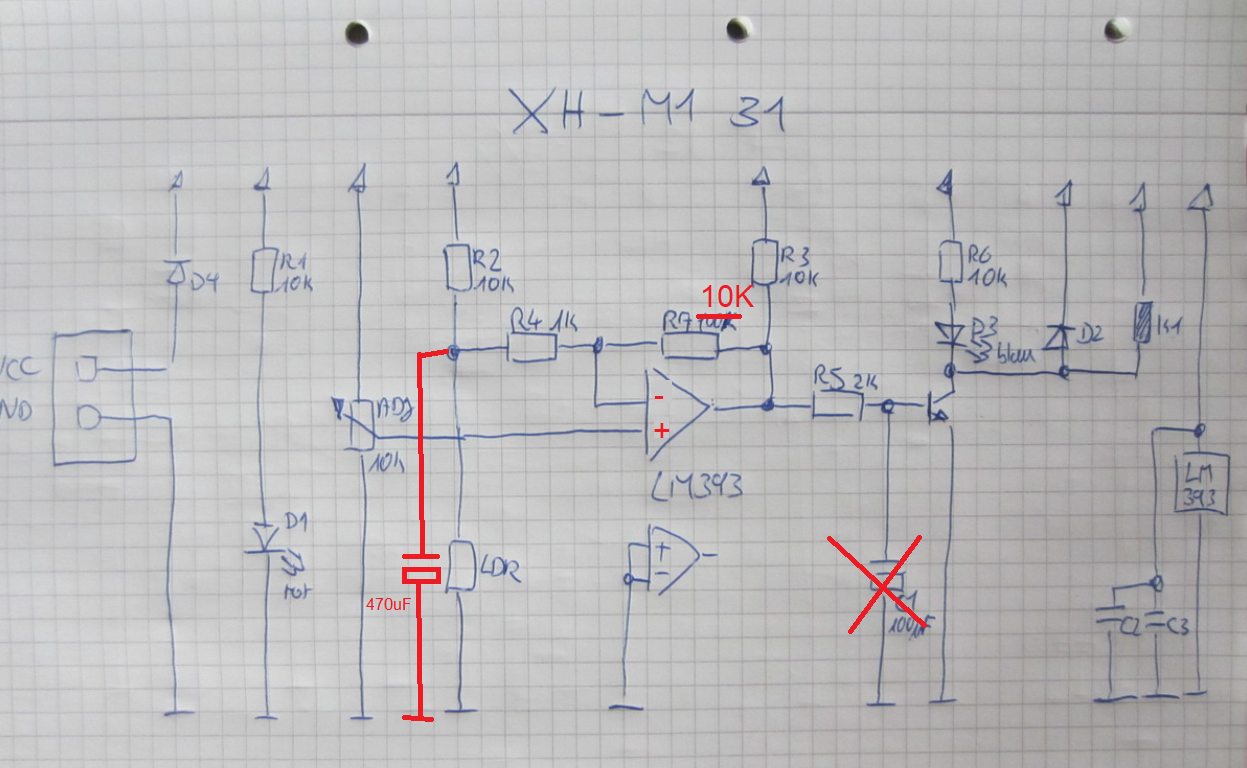 XH-M1 31
VCC
ND
D4
R1
10K
ADJ
10K
R2
10K
R4 1K
10K
R7 100K
R3
10K
R5 2K
R6
10K
D3
blau
D2
K1
D1
rot
-
+
LM393
+
-
470uF
LDR
C1
100µF
LM
393
C2
C3